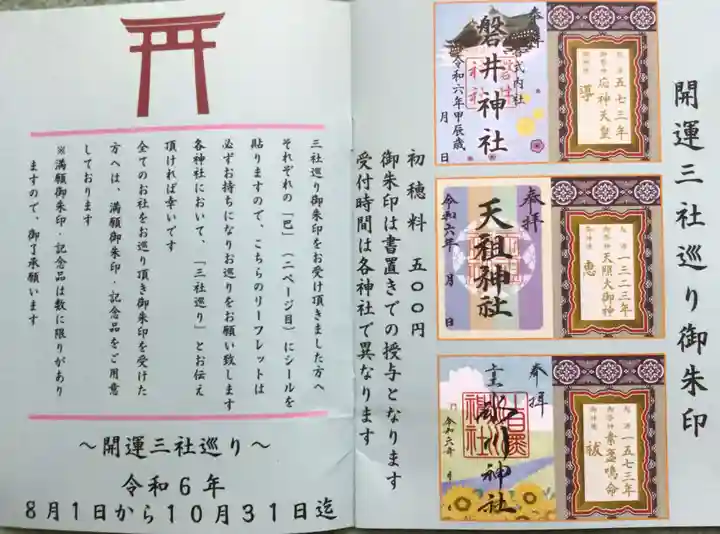 開運三社巡り御朱印
奉拝
式内社
磐井神社
令和六年甲辰歳
月 日
起源 五七三年
御祭神 応神天皇
御神徳 導
奉拝
天祖神社
令和六年 月 日
起源 一三二三年
御祭神 天照大御神
御神徳 恵
奉拝
氷川神社
令和六年 月
起源 一五七三年
御祭神 素盞鳴命
御神徳 祓
初穂料 五〇〇円
御朱印は書置きでの授与となります
受付時間は各神社で異なります
三社巡り御朱印をお受け頂きました方へ
それぞれの「巴」(二ページ目)にシールを
貼りますので、こちらのリーフレットは
必ずお持ちになりお巡りをお願い致します
各神社において、「三社巡り」とお伝え
頂ければ幸いです
全てのお社をお巡り頂き御朱印を受けた
方へは、満願御朱印・記念品をご用意
しております
※満願御朱印・記念品は数に限りがあり
ますので、御了承願います
～開運三社巡り～
令和6年
8月1日から10月31日迄